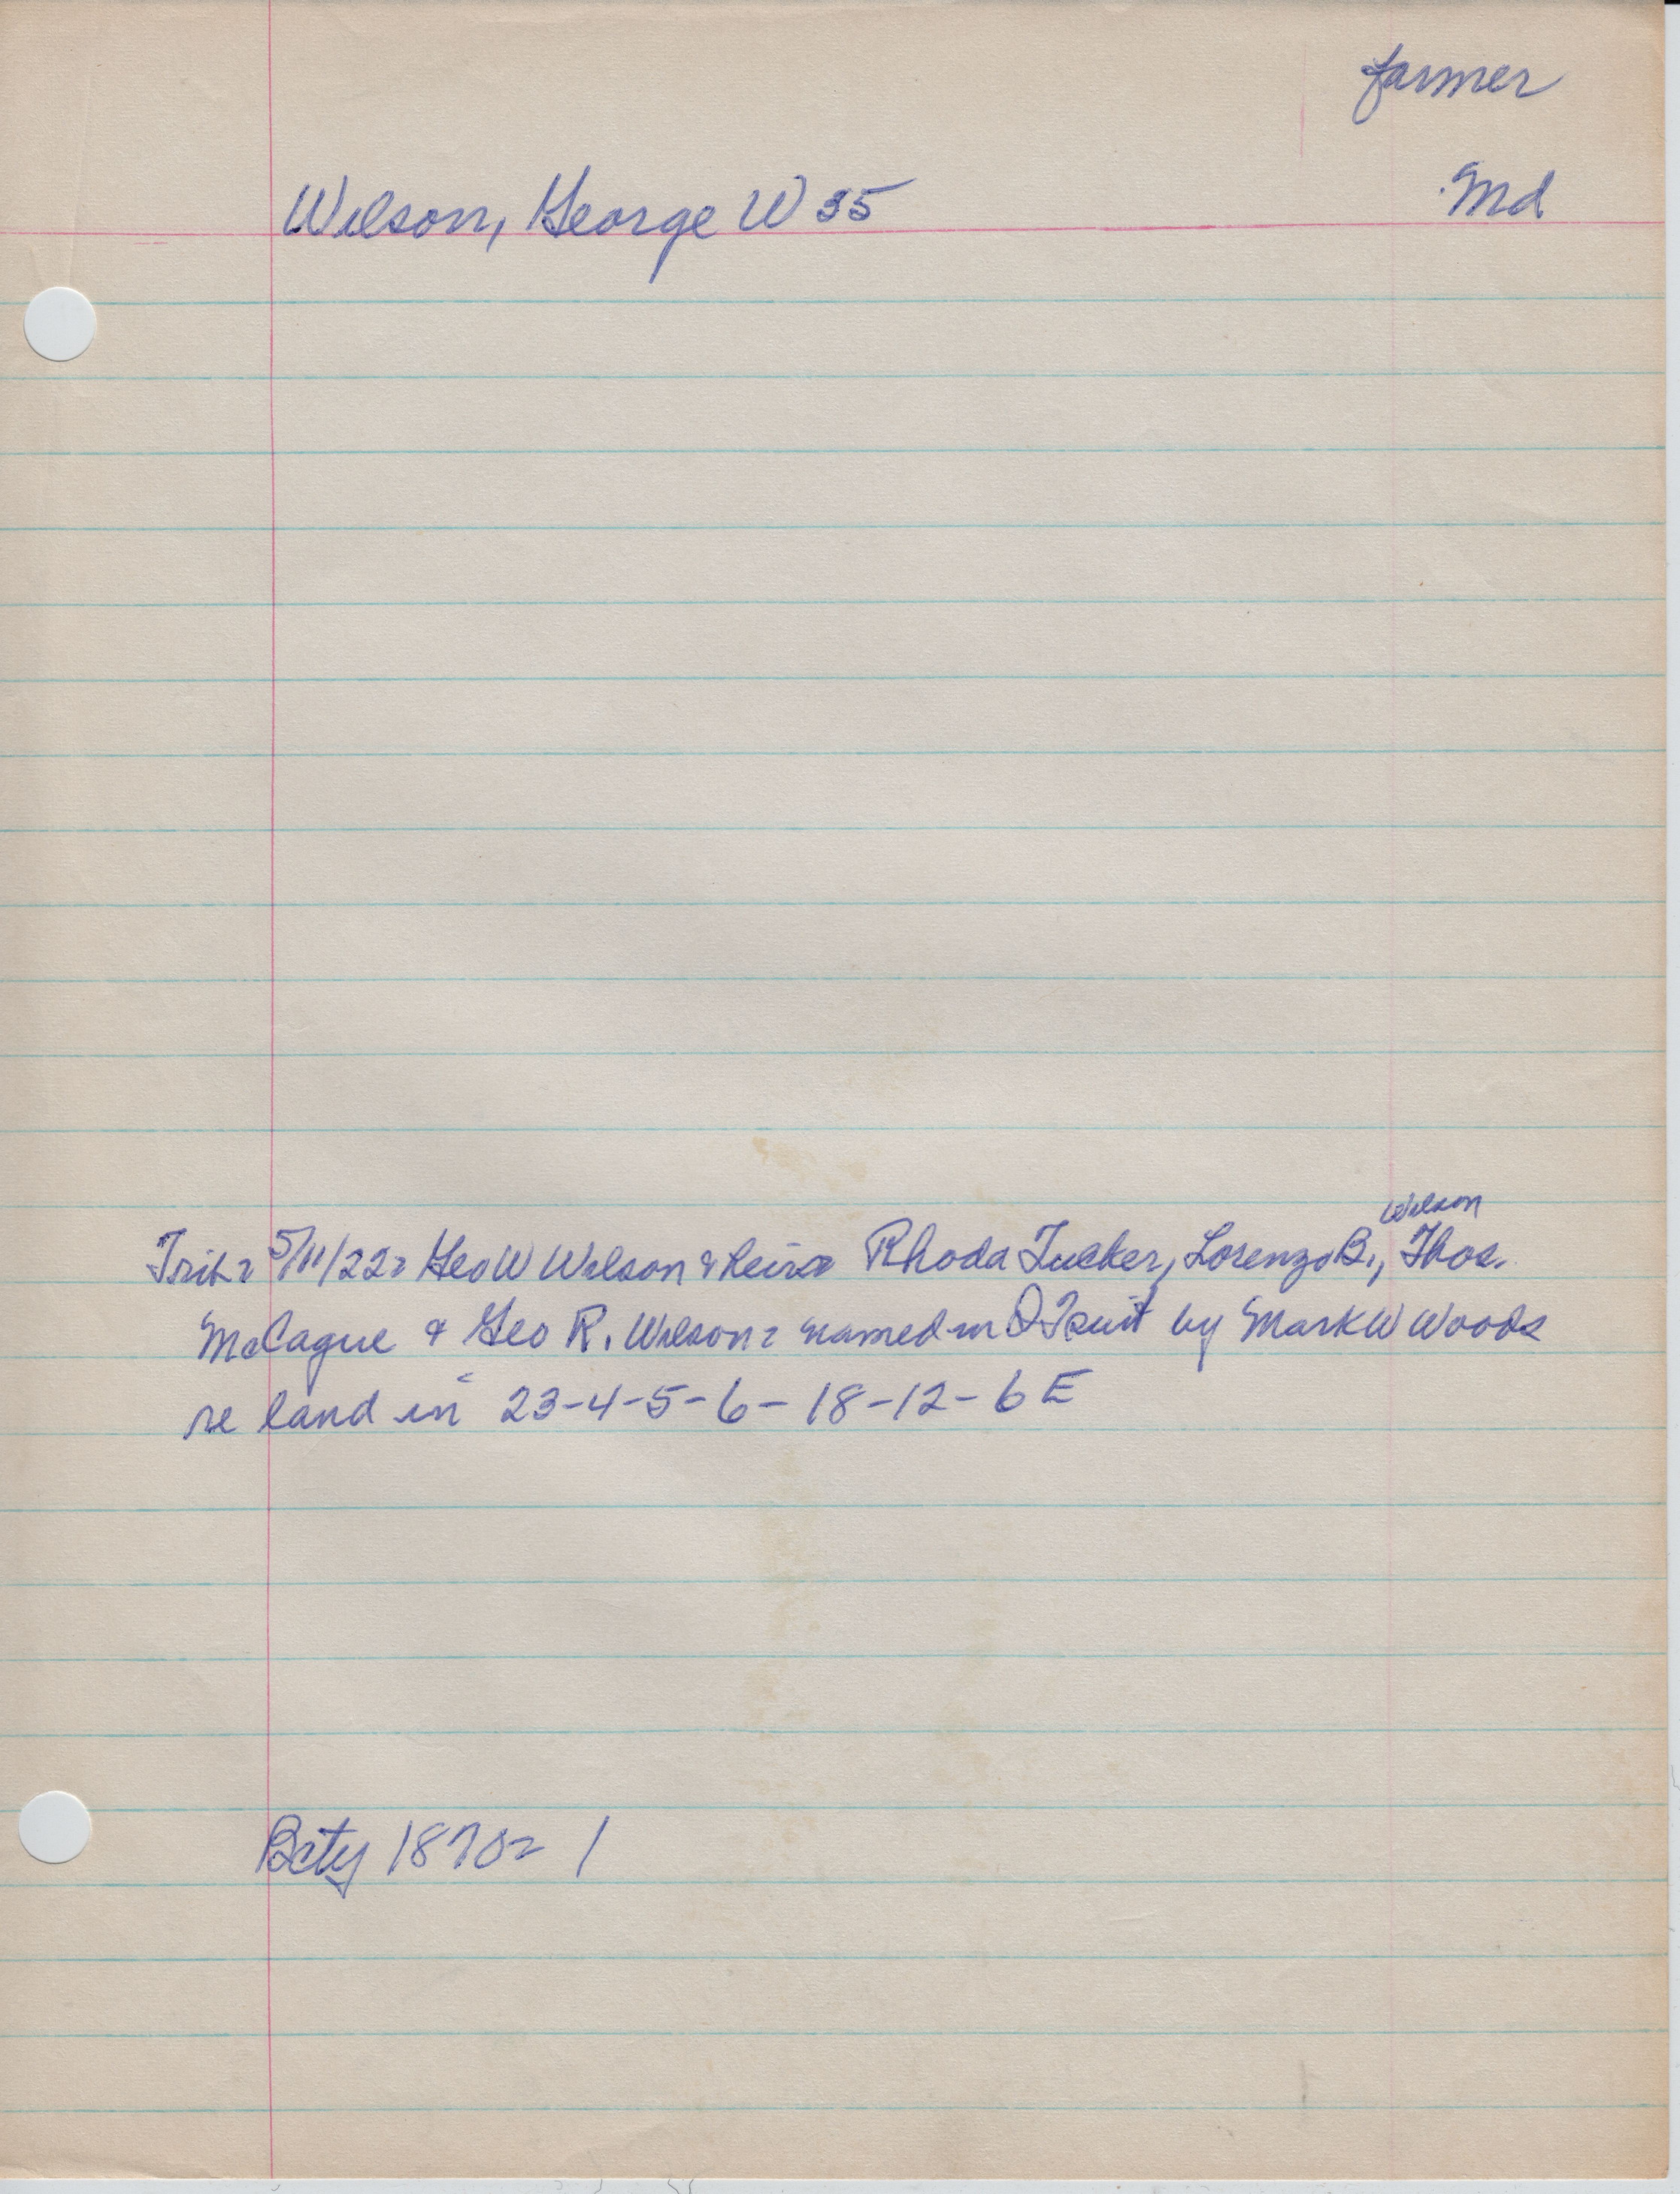 farmer
Wilson, George W 35
Md
Wilson
Trib: 5/11/22: Geo W Wilson & heirs Rhoda Tucker, Lorenzo B., Thos.
McCague & Geo R. Wilson: named in QT suit by Mark W Woods
re land in 23-4-5-6-18-12-6E
Bcty 1870: 1